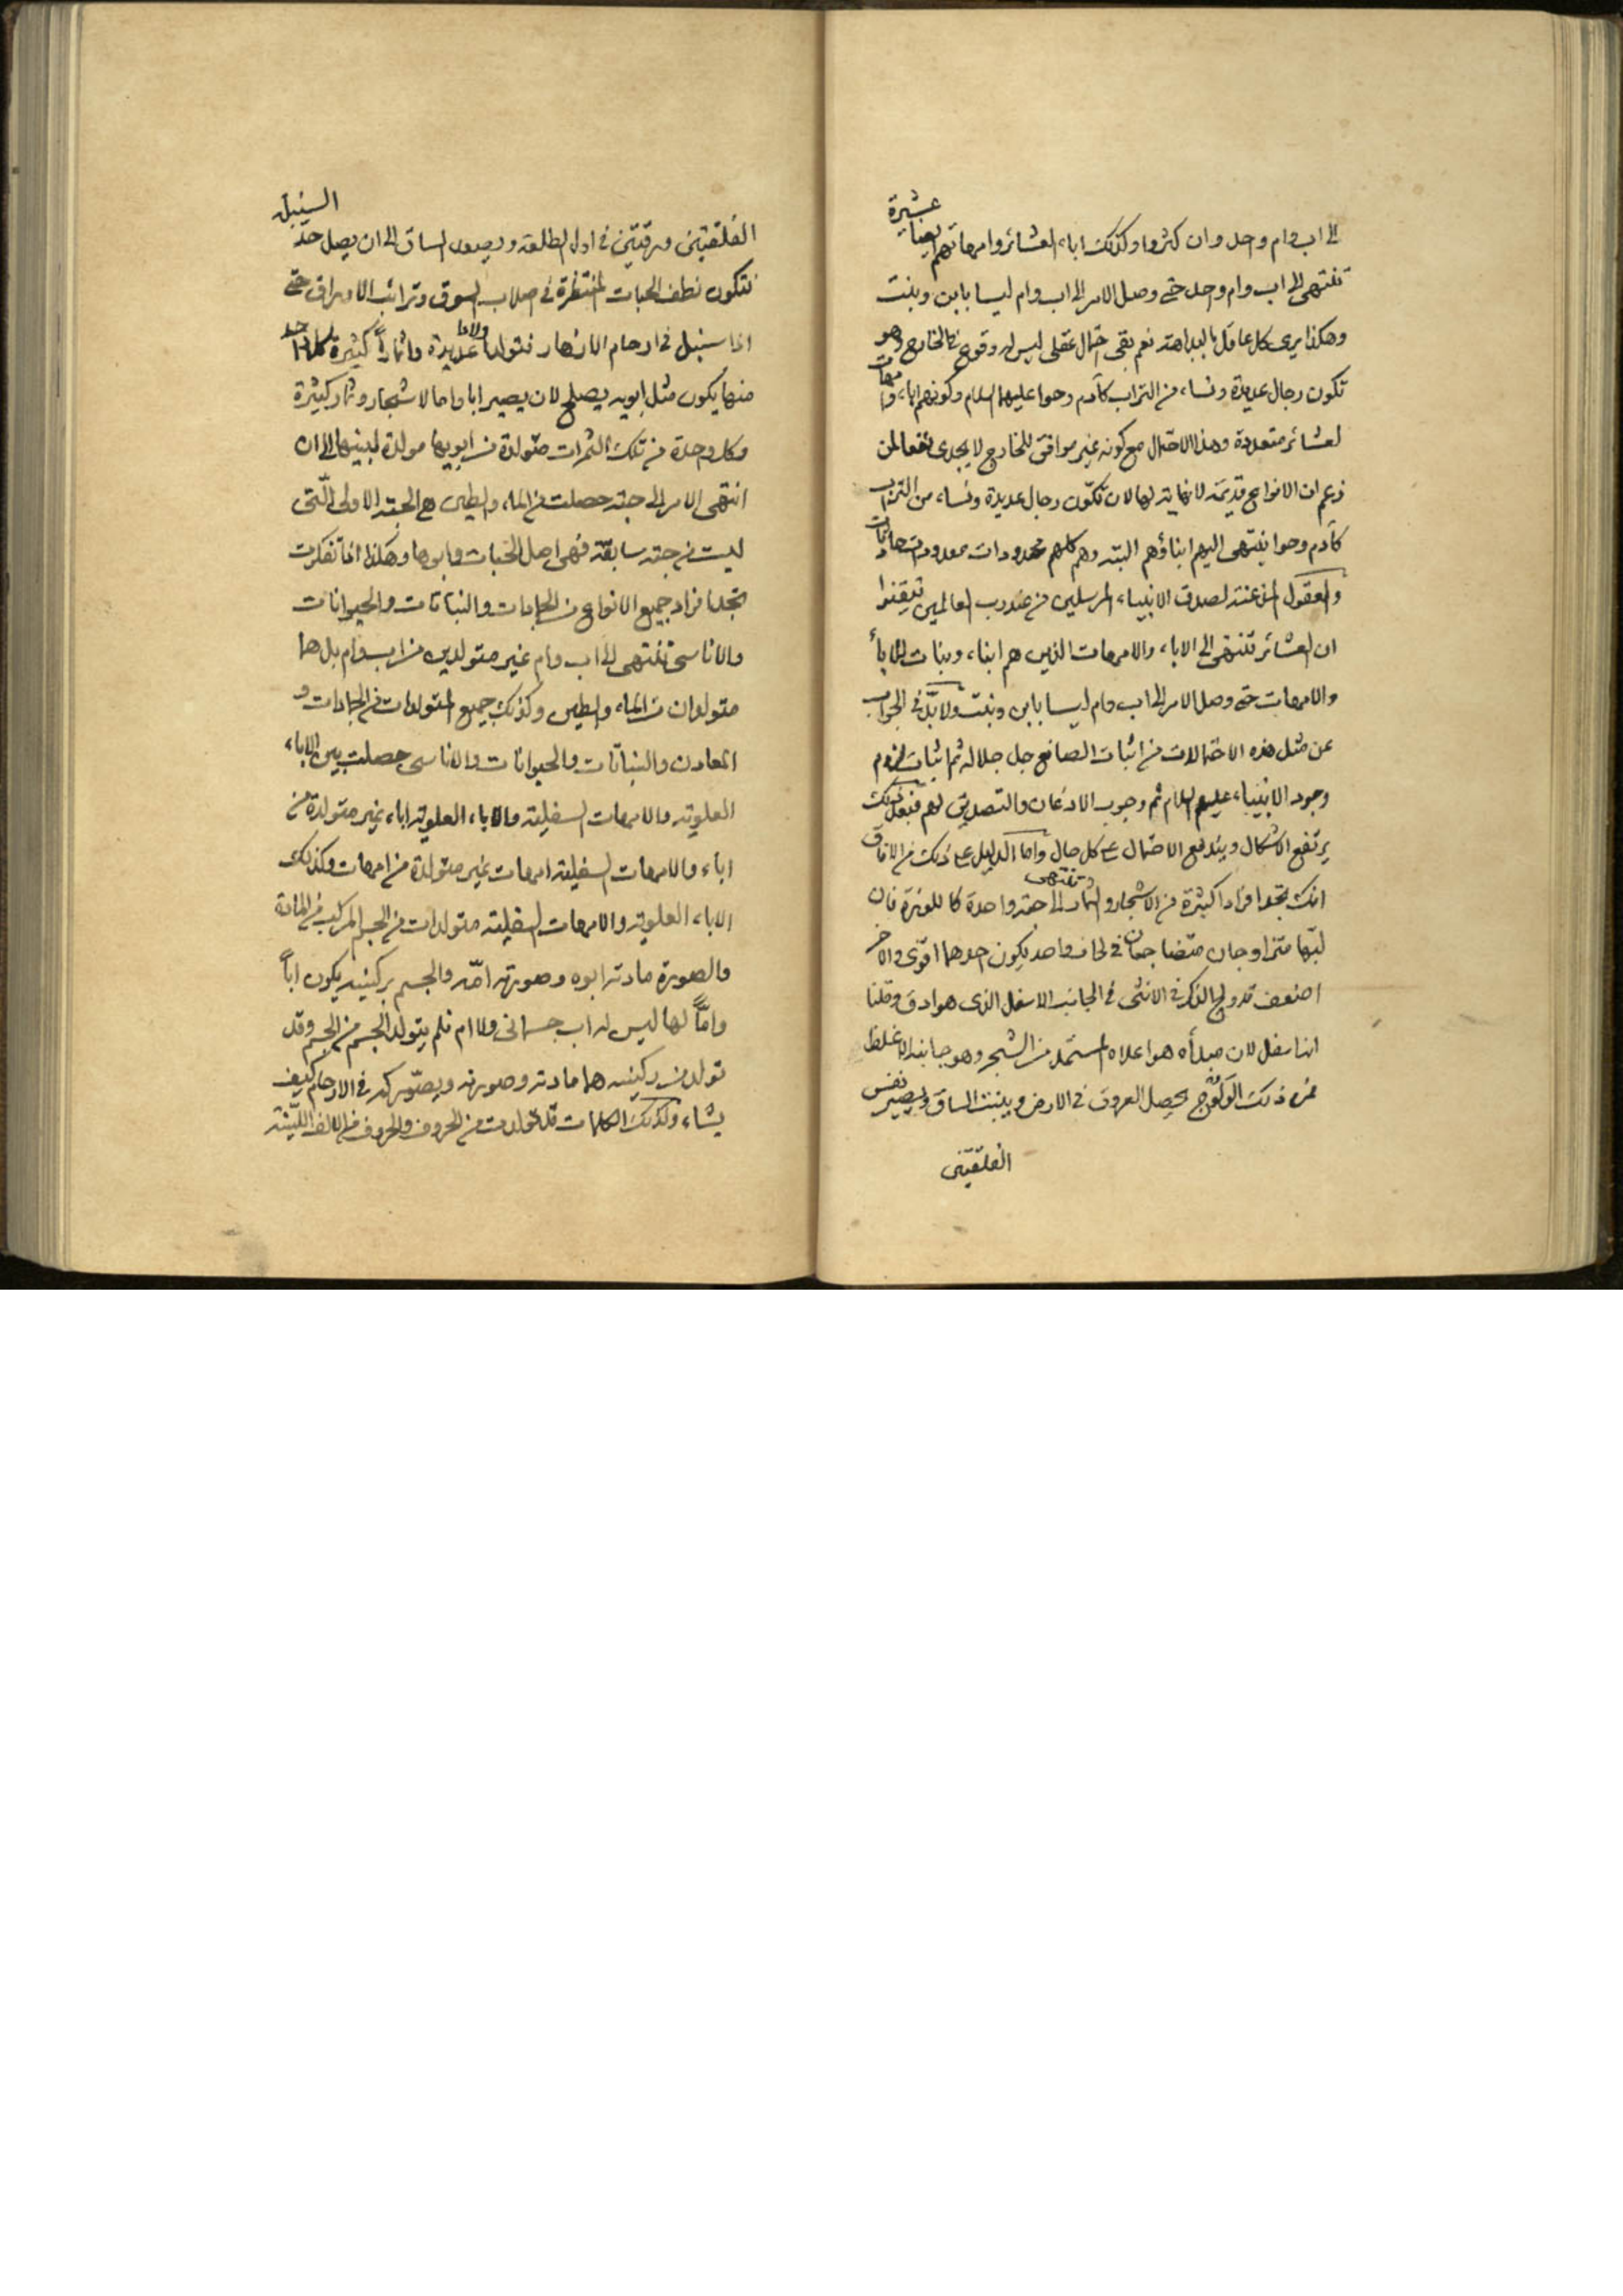 عشيرة
الى اب وام واحد وان كثروا وكذلك اباء العشائر وامهاتهم ايضا
تنتهى الى اب وام واحد حتى وصل الامر الى اب وام ليسا بابن وبنت
وهكذا يرى كل عاقل بالبداهة نعم بقى احتمال عقلى ليس له وقوع فى الخارج وهو
تكون رجال عديدة ونساء من التراب كآدم وحوا عليهما السلام وكونهم اباء وامهات
لعشائر متعددة وهذا الاحتمال مع كونه غير موافق للخارج لا يجدى نفعا لمن
زعم ان الانواع قديمة لا نهاية لها لان تكوّن رجال عديدة ونساء من التراب
كآدم وحوا ينتهى اليهم ابناؤهم البتة وهم كلهم محدودات معدودات حادثات
والعقول المذعنة لصدق الانبياء المرسلين من عند رب العالمين تيقنوا
ان العشائر تنتهى الى الاباء والامهات الذين هم ابناء وبنات للاباء
والامهات حتى وصل الامر الى اب وام ليسا بابن وبنت ولابدّ فى الجواب
عن مثل هذه الاحتمالات من اثبات الصانع جل جلاله ثم اثبات لزوم
وجود الانبياء عليهم السلام ثم وجوب الاذعان والتصديق لهم فبعد ذلك
يرتفع الاشكال ويندفع الاحتمال على كل حال واما الدليل على ذلك من الافاق
انك تجد افرادا كثيرة من الاشجار والثمار تنتهى الى حقة واحدة كاللوزة فان
لبّها متزاوجان متضاجعان فى لحاف واحد يكون احدهما اقوى والاخر
اضعف قد ولج الذكر فى الانثى فى الجانب الاسفل الذى هو ادق وقلنا
انه اسفل لان مبدأه هو اعلاه المستمد من الشجر وهو جانبه الاغلظ
فمن ذلك الولوج يحصل العروق فى الارض وينبت الساق ويصير نفس
الفلقتين
السنبل
الفلقتين ورقتين فى اول الطلعة ويصعد الساق الى ان يصل حدّ
فتكون نطف الحبات المنتظرة فى صلاب السوق وترائب الاوراق حتى
اذا سنبل فى ارحام الازهار فتولد اولادا عديدة واثماراً كثيرة كل واحد
منها يكون مثل ابويه يصلح لان يصير ابا واما لاشجار وثمار كثيرة
وكل واحدة من تلك الثمرات متولدة من ابويها مولدة لبنيها الى ان
انتهى الامر الى حبة حصلت من الماء والطين هى الحبة الاولى الّتى
ليست من حبة سابقة فهى اصل الحبات وابوها وهكذا اذا تفكرت
تجد افراد جميع الانواع من الجمادات والنباتات والحيوانات
والاناسى تنتهى الى اب وام غير متولدين من اب وام بل هما
متولدان من الماء والطين وكذلك جميع المتولدات من الجمادات و
المعادن والنباتات والحيوانات والاناسى حصلت بين الاباء
العلوية والامهات السفلية والاباء العلوية اباء غير متولدة من
اباء والامهات السفلية امهات غير متولدة من امهات وكذلك
الاباء العلوية والامهات السفلية متولدات من الجسم المركب من المادة
والصورة مادته ابوه وصورته امّه والجسم بركنيه يكون اباً
وامّاً لها ليس له اب جسمانى ولا ام فلم يتولد الجسم من الجسم وقد
تولد من ركنيه هما مادته وصورته ويصوّركم فى الارحام كيف
يشاء وكذلك الكلمات قد تولدت من الحروف والحروف من الالف اللينة